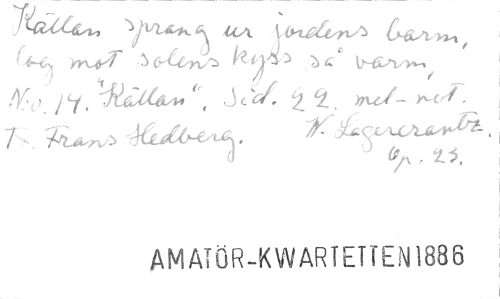 Källan sprang ur jordens barm,
log mot solens kyss så varm,
N:o. 14. "Källan". Sid. 22. mel-not.
T. Frans Hedberg. W. Lagercrantz.
Op. 23.
AMATÖR-KWARTETTEN 1886